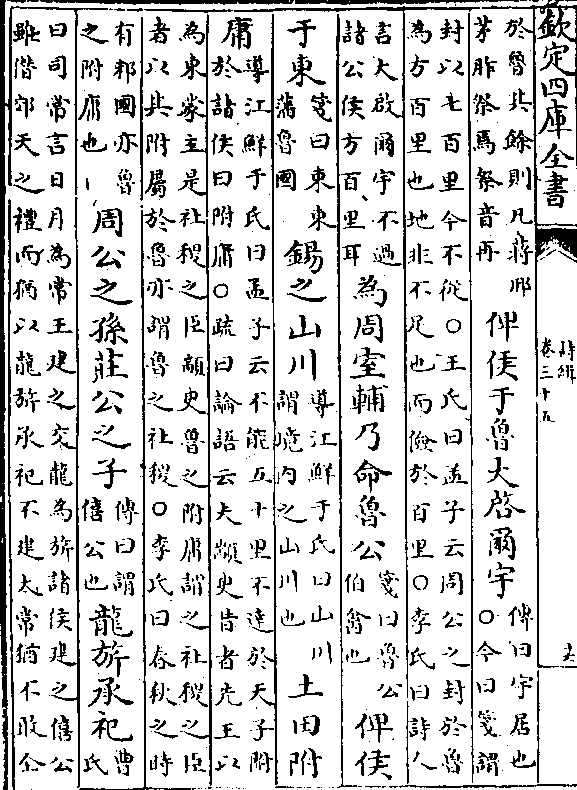 欽定四庫全書
詩緝
卷三十五
十六
於魯其餘則凡蔣邢
茅胙祭焉祭音再
俾侯于魯大啓爾宇
傳曰宇居也
○今曰箋謂
封以七百里今不從○王氏曰孟子云周公之封於魯
為方百里也地非不足也而儉於百里○李氏曰詩人
言大啟爾宇不過
諸公侯方百里耳
為周室輔乃命魯公
箋曰魯公
伯禽也
俾侯
于東
箋曰東東
藩魯國
錫之山川
導江鮮于氏曰山川
謂境内之山川也
土田附
庸
導江鮮于氏曰孟子云不能五十里不達於天子附
於諸侯曰附庸○疏曰論語云夫顓臾昔者先王以
為東蒙主是社稷之臣顓臾魯之附庸謂之社稷之臣
者以其附屬於魯亦謂魯之社稷○李氏曰春秋之時
有邾國亦魯
之附庸也
周公之孫莊公之子
傳曰謂
僖公也
龍旂承祀
曹
氏
曰司常言日月為常王建之交龍為旂諸侯建之僖公
雖僭郊天之禮而猶以龍旂承祀不建太常猶不敢全